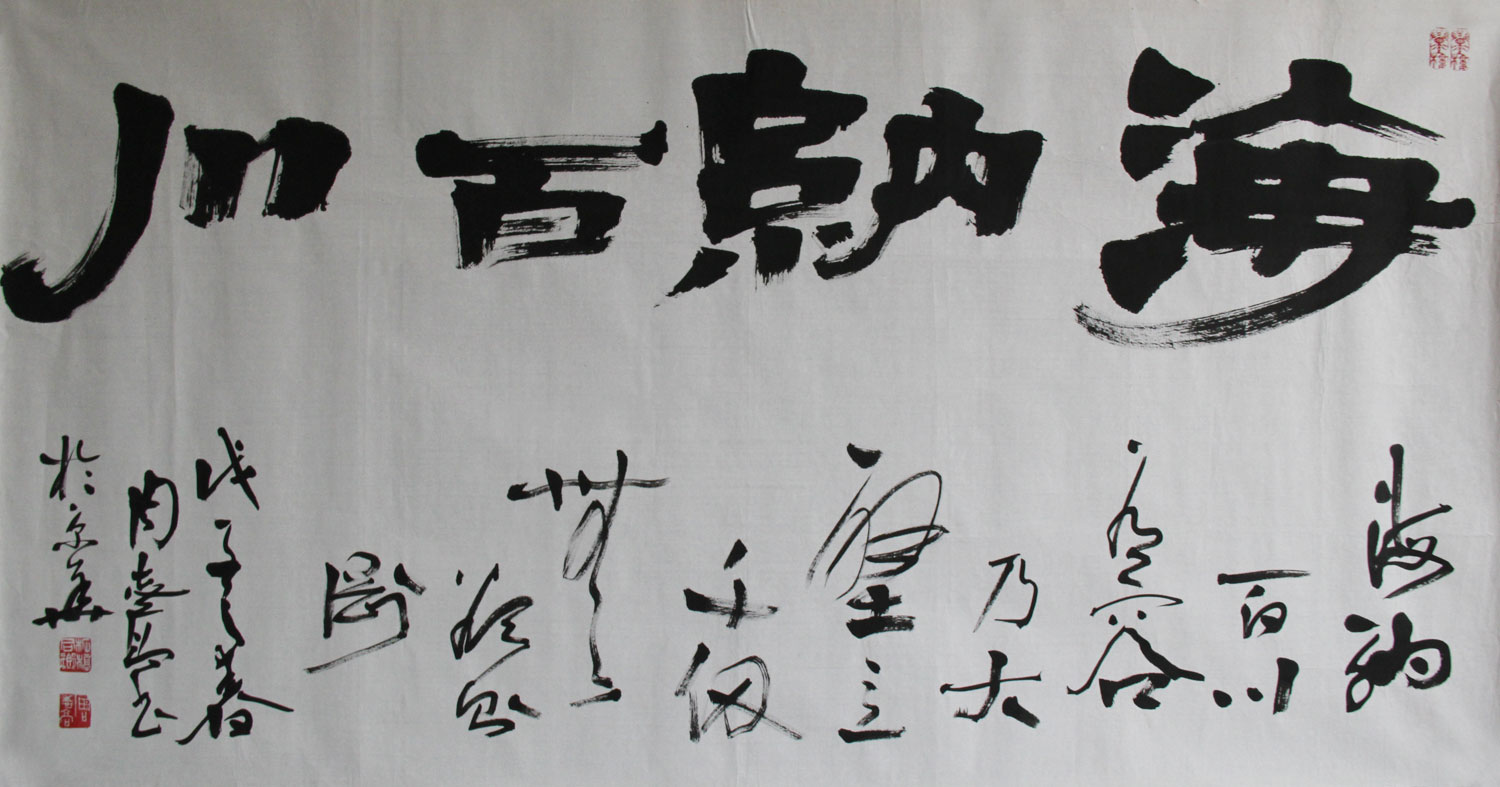 海納百川
海納
百川
有容
乃大
壁立
千仞
無
欲則
剛
戊子之春
周
於京華